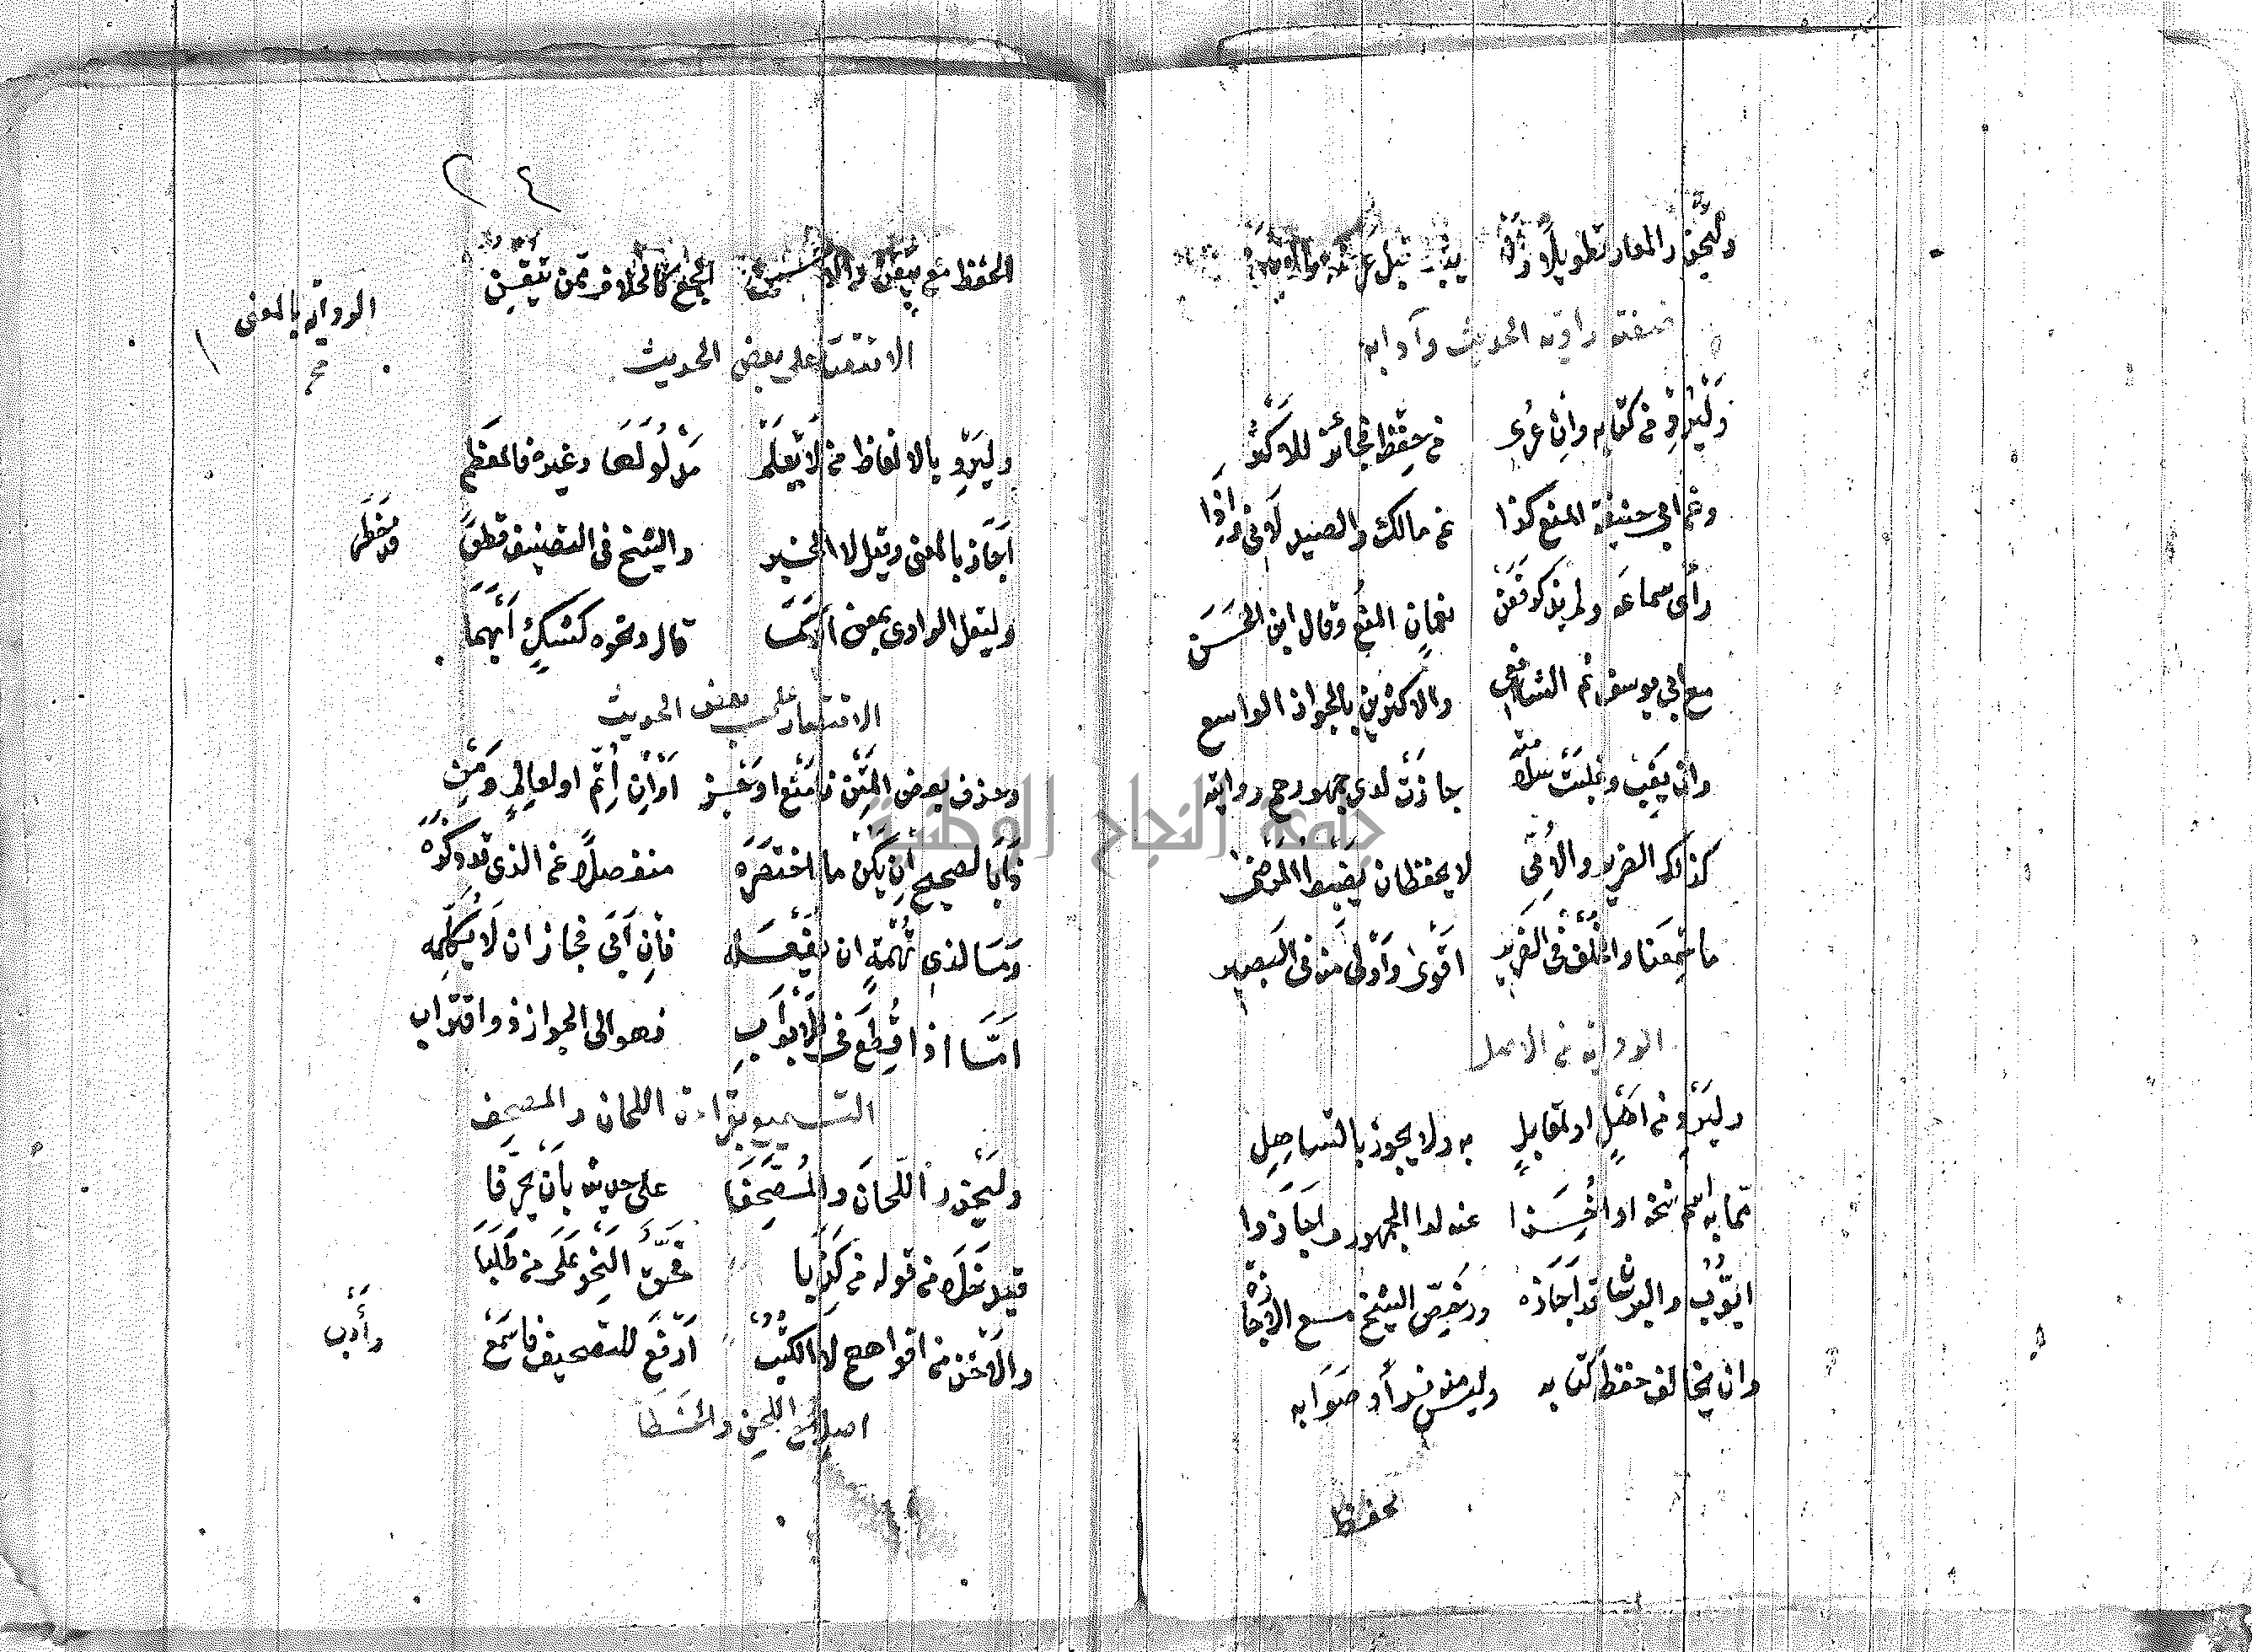 وليحذر المعار تطويلا وان يثبت قبل عرضه
صفة راوية الحديث وآدابه
وَلْيَرْوِ من كتابه وإن عُرى من حِفْظِه فجائز للاكثر
وعن ابي حنيفة المنع كذا عن مالك والصيدلاني وَإِذَا
رأى سماعه ولم يذكر فَعَنْ نعمانٍ المنعُ وقال ابن الحَسَن
مع ابي يوسف ثم الشافعي والاكثرين بالجواز الواسع
وان يغب وغلبت سلامته جازت لدى جمهورهم روايته
كذلك الضرير والأمي لا يحفظان يضبط المرضي
ما سمعنا والخُلْف في الضرير اقوى وأولى منه في البصير
الرواية من الاصل
وليَرْوِ من اصلٍ او لمقابلٍ به ولا يجوز بالتساهلِ
مما به اسم شيخه او اخذا عنه لدا الجمهور واجازوا
ايّوب والبرسان قد أجازه ورخّص الشيخ مع الاجازه
وان يخالف حفظه كتابه وليس منه فرأوا صوابه
الحفظ
الحفظ مع تيقن والاحسن الجمع كالخلاف ممن يتقن
الرواية بالمعنى
صح
الاقتصار على بعض الحديث
وليَرْوِ بالالفاظ من لا يَعْلَم مَدْلُولَهَا وغيره فالمعظم
أَجَازَ بالمعنى وقيل لا الخبر والشيخ في التصنيف قطعًا قد حَظَر
وليقل الراوي بمعنى أو كما قال ونحوه كشكٍّ أُبْهِمَا
الاقتصار على بعض الحديث
وحذف بعض المتن فامنع او أجز او إن أُتِمّ او لعالمٍ وَمِزْ
ذَا بالصحيح إن يَكُنْ ما اختصره منفصلًا عن الذي قد ذكره
وَمَا لذي تُهْمَةٍ ان يفعله فإن أَبَى فجاز ان لا يُكْمِله
امّا اذا قُطِّع في الأبواب فهو الى الجواز ذو اقتراب
التسميع بقراءة اللحان والمصحف
وليَحْذر اللّحانَ والمُصَحِّفَا على حديثه بأن يحرّفا
فيدخلا في قوله من كذبا فحقّ النحو على من طلبا
والأخذ من افواههم لا الكتب أدفع للتصحيف فاسمع وأدأب
اصلاح اللحن والخطأ